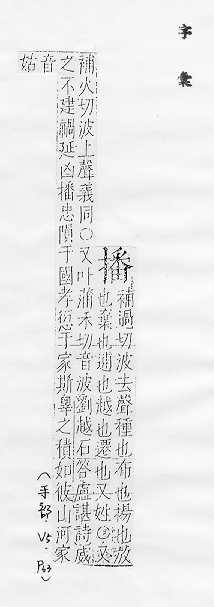 字彙
播
補過切波去聲種也布也揚也放
也棄也逋也越也遷也又姓②又
補火切波上聲義同○又叶蒲禾切音波劉越石答盧諶詩威
之不建禍延凶播忠隕于國孝愆于家斯辠之積如彼山河家
音姑
(手部. V5. P63)